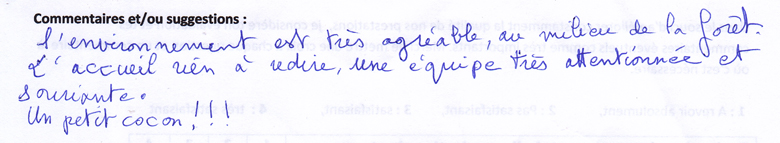 Commentaires et/ou suggestions :
l'environnement est très agréable, au milieu de la forêt.
L'accueil rien à redire, une équipe très attentionnée et
souriante.
Un petit cocon,!!!